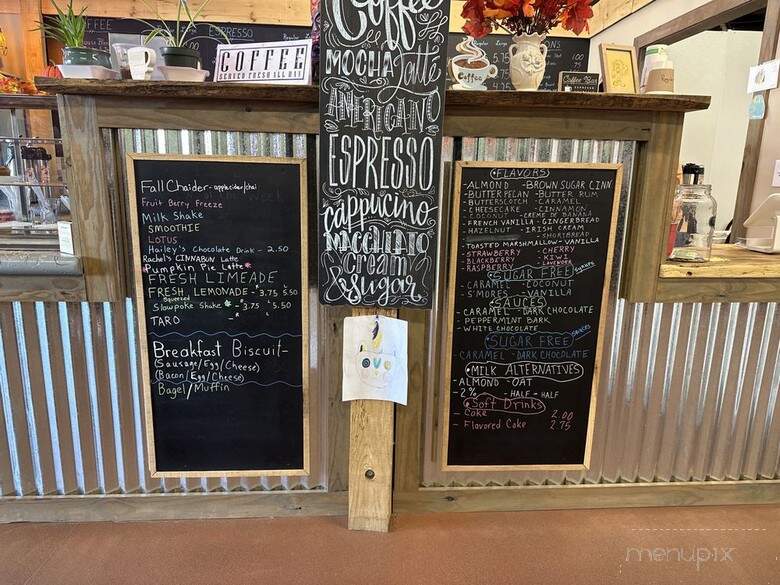 COFFEE
ESPRESSO
COFFEE
SERVED FRESH ALL DAY
Coffee
MOCHA Latte
AMERICANO
ESPRESSO
cappucino
MACCHIATO
cream
& sugar
Coffee
Coffee Bar
Fall Chaider - apple cider/chai
Fruit Berry Freeze
Milk Shake
SMOOTHIE
LOTUS
Hailey's Chocolate Drink - 2.50
Rachel's CINNABUN Latte
Pumpkin Pie Latte
FRESH LIMEADE
FRESH LEMONADE - 3.75 5.50
Squeezed
Slowpoke Shake - 3.75 5.50
TARO
Breakfast Biscuit -
(Sausage/Egg/Cheese)
(Bacon/Egg/Cheese)
Bagel/Muffin
FLAVORS
- ALMOND - BROWN SUGAR CINN
- BUTTER PECAN - BUTTER RUM
- BUTTERSCOTCH - CARAMEL
- CHEESECAKE - CINNAMON
- COCONUT - CREME DE BANANA
- FRENCH VANILLA - GINGERBREAD
- HAZELNUT - IRISH CREAM
- SHORTBREAD
- TOASTED MARSHMALLOW - VANILLA
- STRAWBERRY - CHERRY
- BLACKBERRY - KIWI
- RASPBERRY - LAVENDER
SUGAR FREE SYRUPS
- CARAMEL - COCONUT
- S'MORES - VANILLA
SAUCES
- CARAMEL - DARK CHOCOLATE
- PEPPERMINT BARK
- WHITE CHOCOLATE
SUGAR FREE SAUCES
- CARAMEL - DARK CHOCOLATE
MILK ALTERNATIVES
- ALMOND - OAT
- 2% - HALF + HALF
Soft Drinks
- Coke 2.00
- Flavored Coke 2.75
menupix